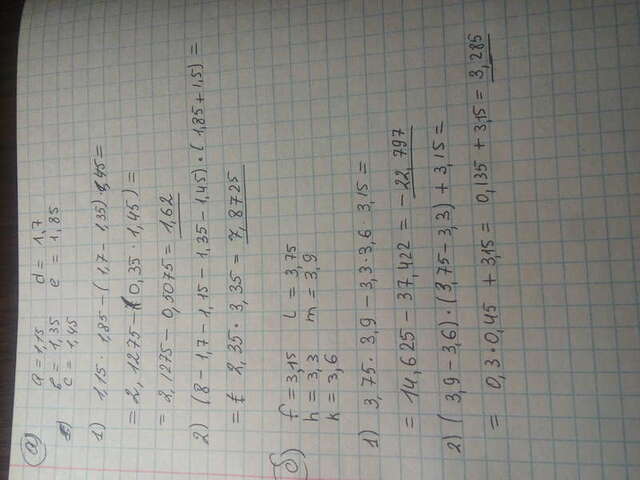 а) a = 1,15 d = 1,7
b = 1,35 e = 1,85
c = 1,45
1) 1,15 · 1,85 - (1,7 - 1,35) · 1,45 =
= 2,1275 - (0,35 · 1,45) =
= 2,1275 - 0,5075 = 1,62
2) (8 - 1,7 - 1,15 - 1,35 - 1,45) · (1,85 + 1,5) =
= 2,35 · 3,35 = 7,8725
б) f = 3,15 l = 3,75
h = 3,3 m = 3,9
k = 3,6
1) 3,75 · 3,9 - 3,3 · 3,6 · 3,15 =
= 14,625 - 37,422 = -22,797
2) (3,9 - 3,6) · (3,75 - 3,3) + 3,15 =
= 0,3 · 0,45 + 3,15 = 0,135 + 3,15 = 3,285